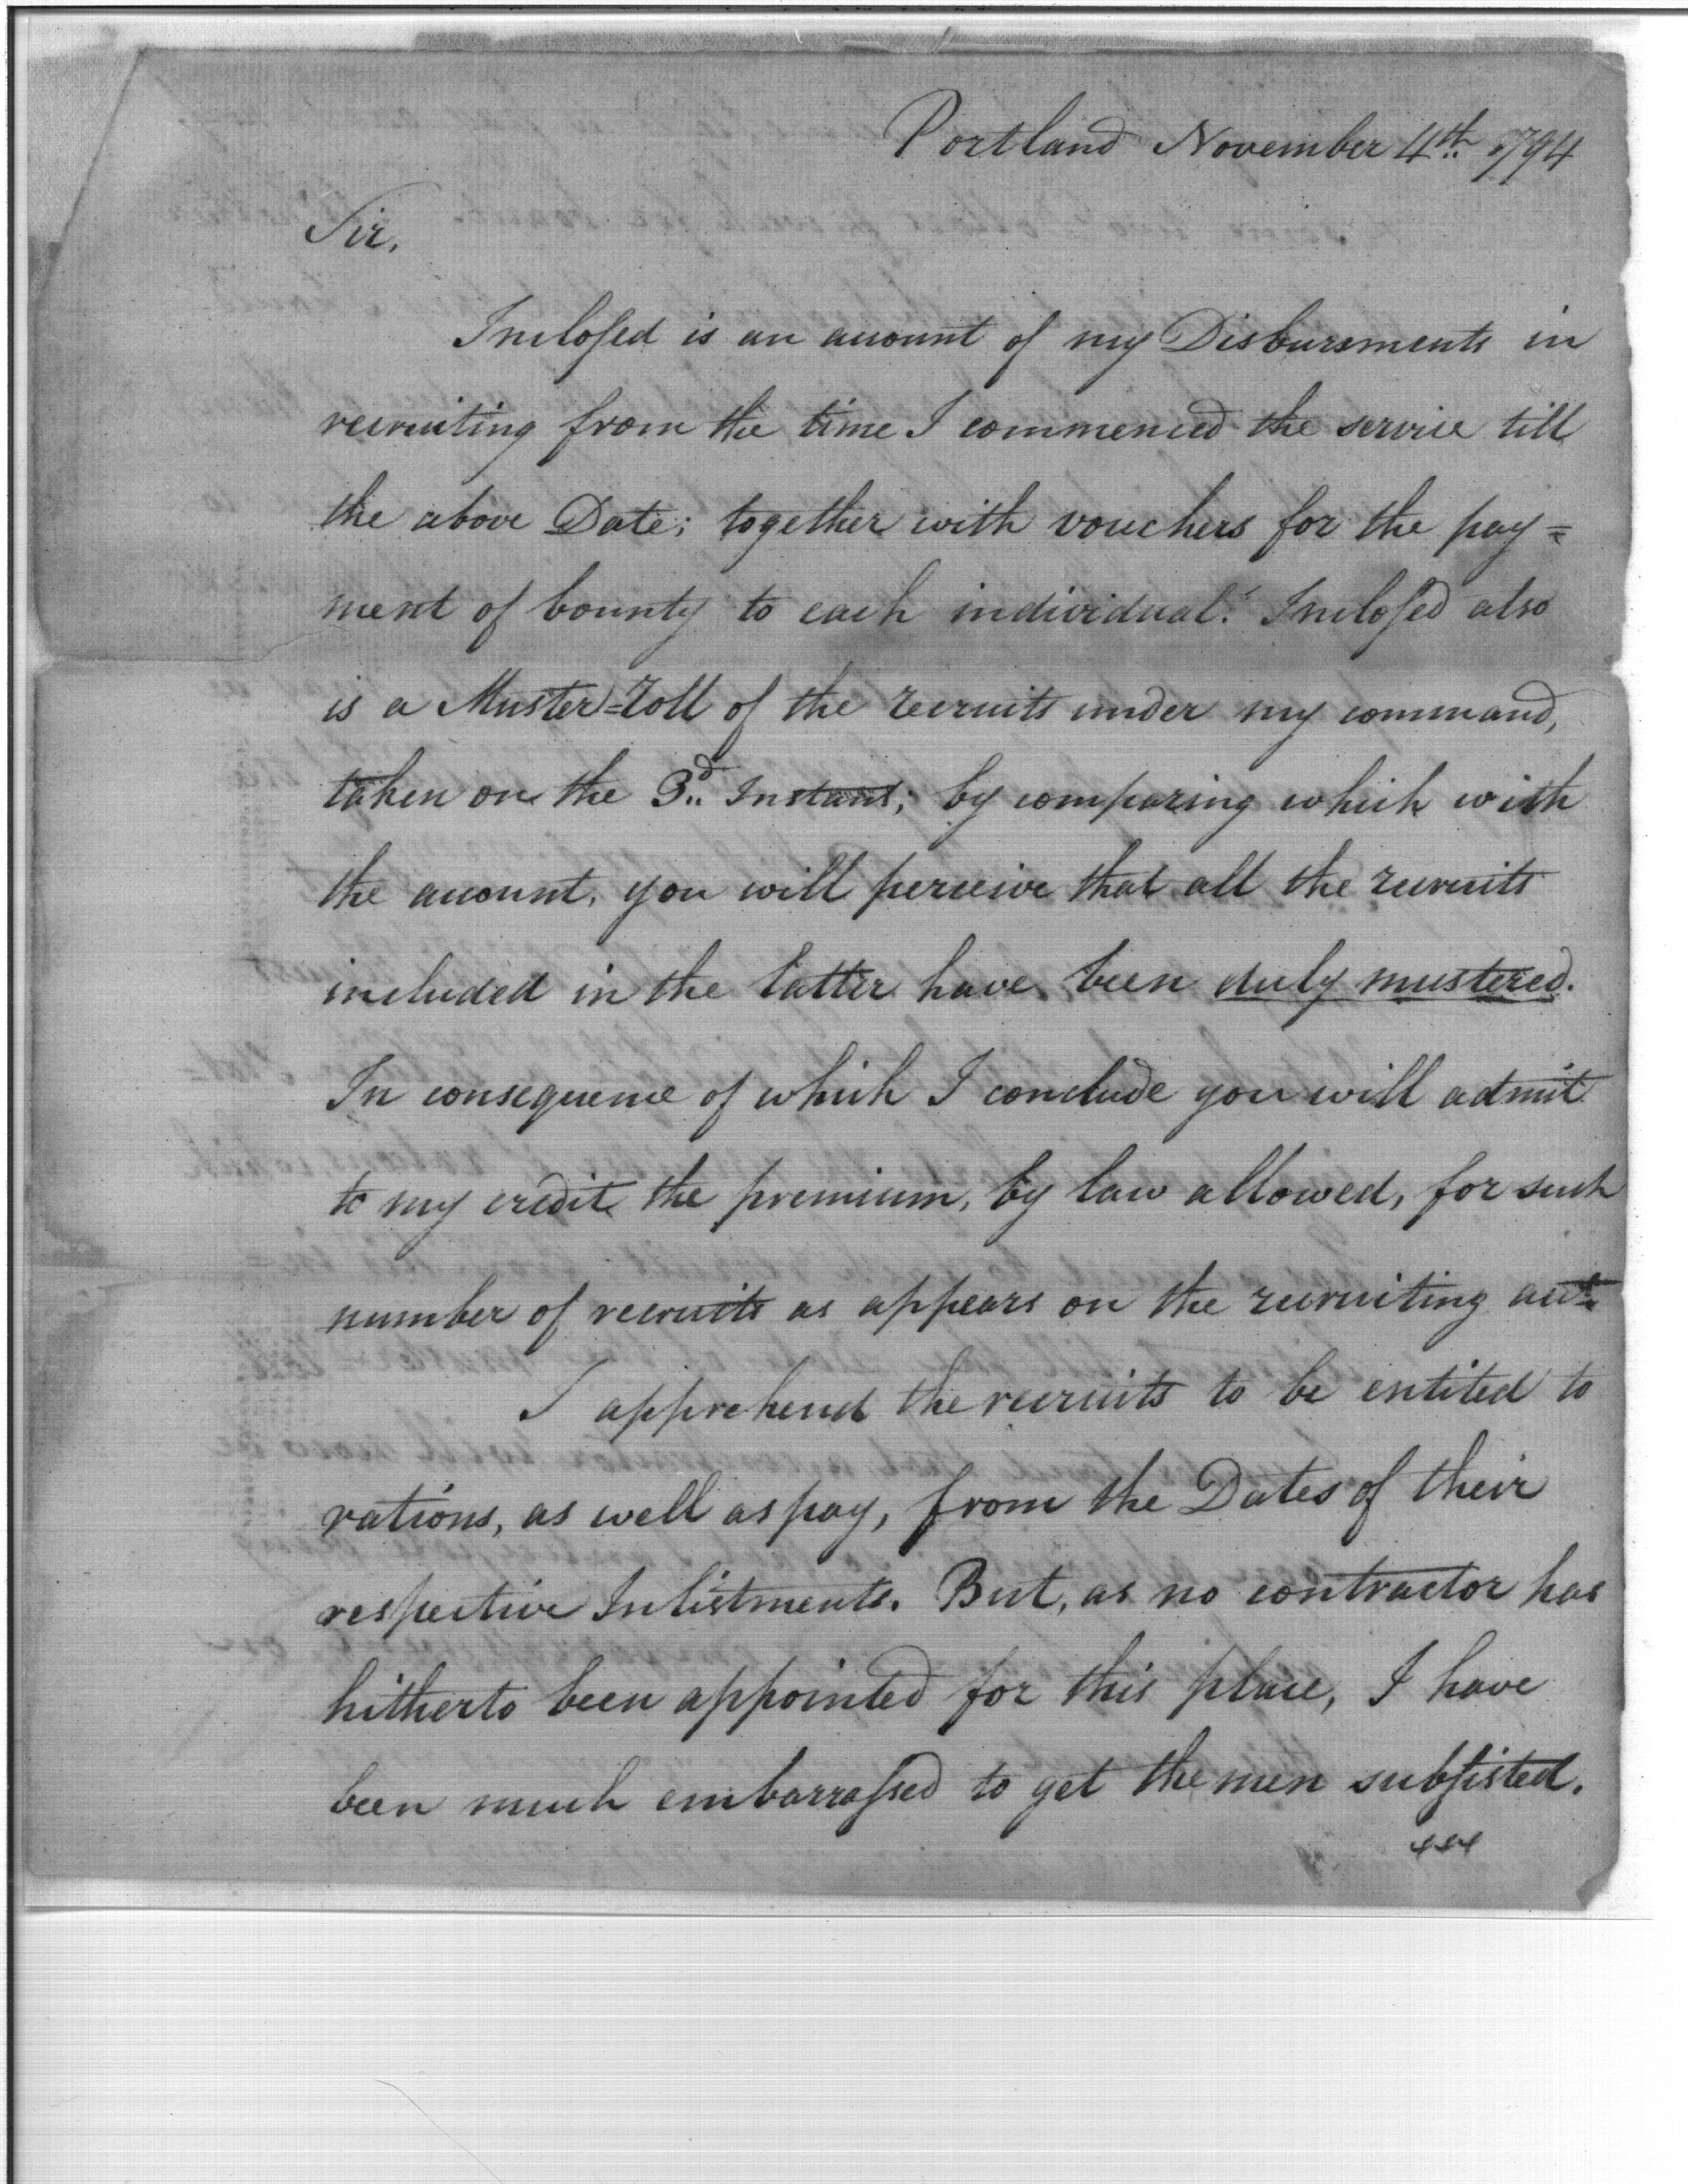 Portland November 4th. 1794
Sir,
Inclosed is an account of my Disbursments in
recruiting from the time I commenced the service till
the above Date; together with vouchers for the pay=
ment of bounty to each individual. Inclosed also
is a Muster=roll of the recruits under my command,
taken on the 3d. Instant; by comparing which with
the account, you will perceive that all the recruits
included in the latter have been duly mustered.
In consequence of which I conclude you will admit
to my credit the premium, by law allowed, for such
number of recruits as appears on the recruiting acct.
I apprehend the recruits to be entited to
rations, as well as pay, from the Dates of their
respective Inlistments. But, as no contractor has
hitherto been appointed for this place, I have
been much embarrassed to get the men subsisted.